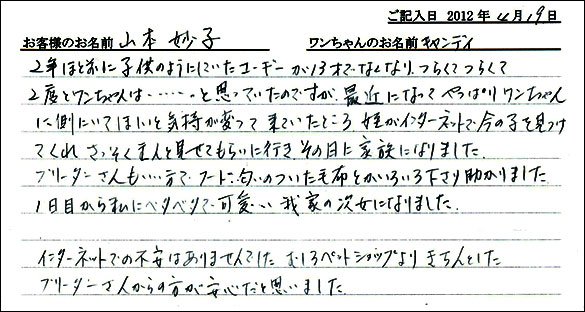 ご記入日 2012 年 4 月 19 日
お客様のお名前 山本 妙子 ワンちゃんのお名前 キャンディ
2年ほど前に子供のようにしていたコーギーが13才でなくなり、つらくてつらくて
2度とワンちゃんは……っと思っていたのですが、最近になってやっぱりワンちゃん
に側にいてほしいと気持が変って来ていたところ 娃がインターネットで今の子を見つけ
てくれ さっそく主人と見せてもらいに行き、その日に家族になりました。
ブリーダーさんもいい方で、フードに匂いのついた毛布とかいろいろ下さり助かりました。
1日目から私にベタベタで可愛いい我家の次女になりました。
インターネットでの不安はありませんでした むしろペットショップよりきちんとした
ブリーダーさんからの方が安心だと思いました。